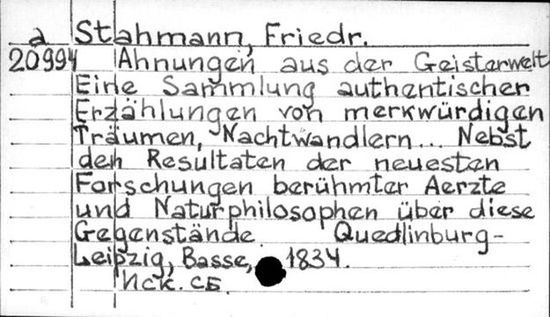 a Stahmann, Friedr.
20994 Ahnungen aus der Geisterwelt
Eine Sammlung authentischer
Erzählungen von merkwürdigen
Träumen, Nachtwandlern... Nebst
den Resultaten der neuesten
Forschungen berühmter Aerzte
und Naturphilosophen über diese
Gegenstände. Quedlinburg-
Leipzig, Basse, 1834.
Иск. СБ.